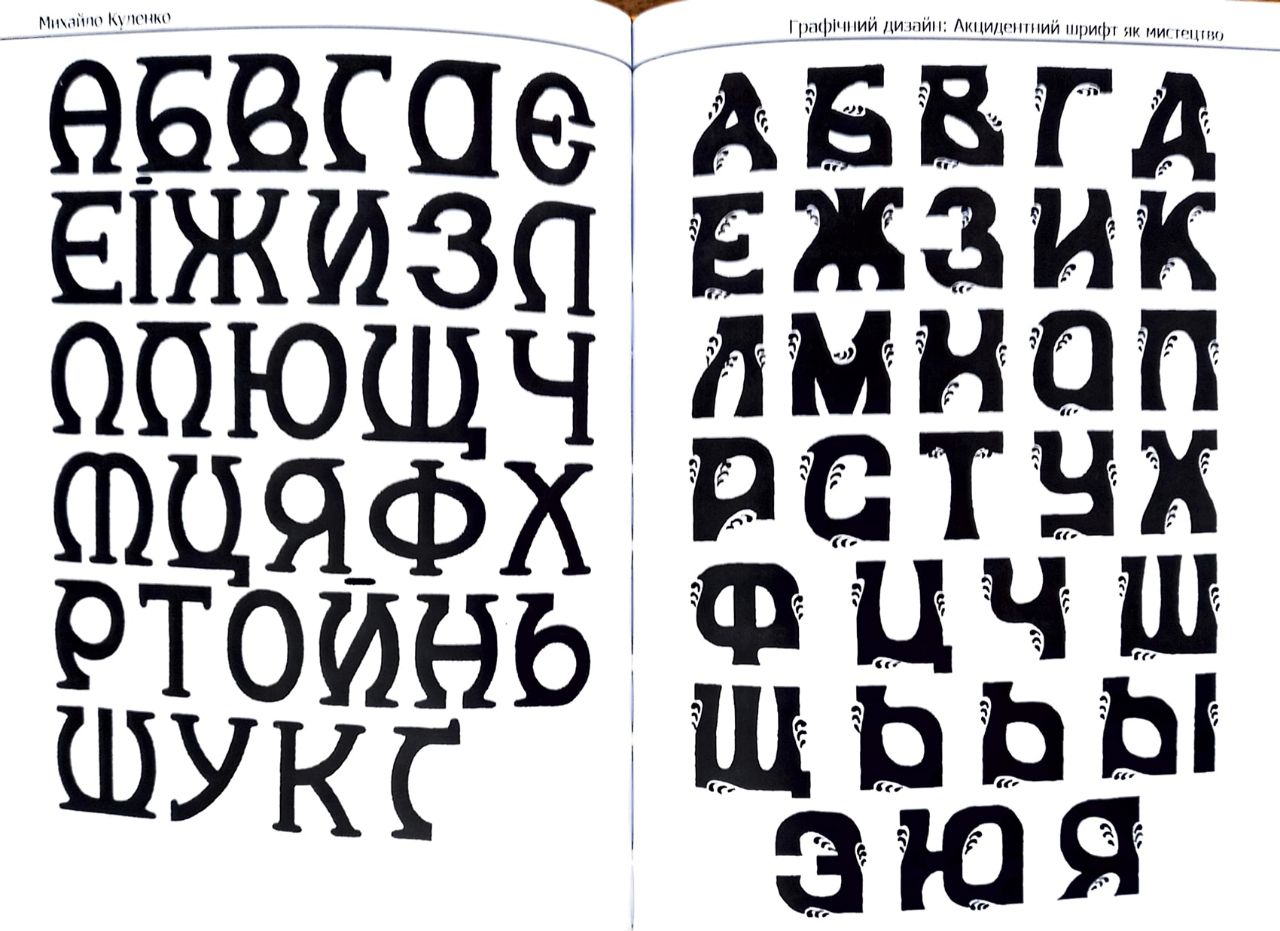 Михайло Куленко
А Б В Г Д Є
Е І Ж И З Л
П П Ю Щ Ч
М Ц Я Ф Х
Р Т О Й Н Ь
Ш У К Ґ
Графічний дизайн: Акцидентний шрифт як мистецтво
А Б В Г Д
Е Ж З И К
Л М Н О П
Р С Т У Х
Ф Ц Ч Ш
Щ Ь Ь Ы
Э Ю Я